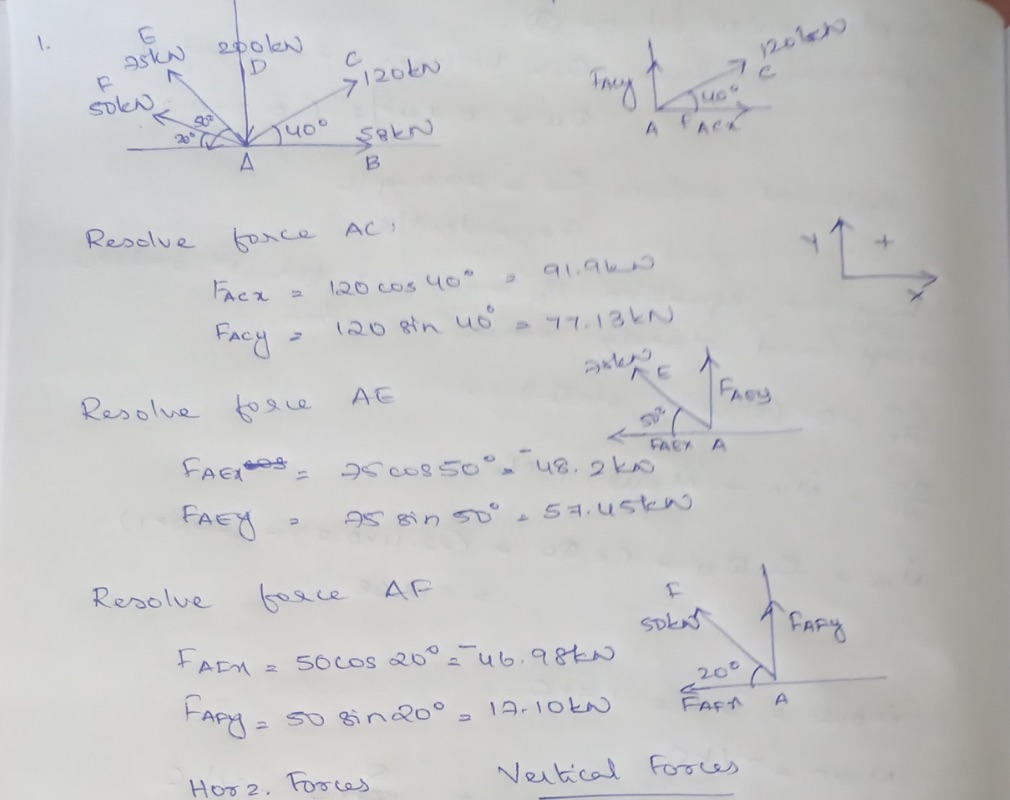 1.
E
75kN
F
50kN
200kN
D
C
120kN
50°
20°
40°
58kN
A
B
120kN
C
FACy
40°
A
FACX
Resolve force AC:
FACX = 120 cos 40° = 91.9kN
FACy = 120 sin 40° = 77.13kN
Y
+
X
75kN
E
FAEy
50°
FAEX
A
Resolve force AE
FAEX = 75 cos 50° = -48.2kN
FAEy = 75 sin 50° = 57.45kN
Resolve force AF
F
50kN
FAFy
20°
FAFX
A
FAFX = 50 cos 20° = -46.98kN
FAFy = 50 sin 20° = 17.10kN
Horz. Forces
Vertical Forces